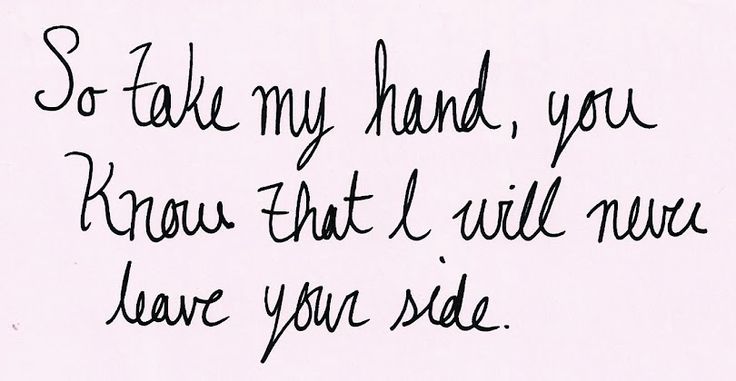 So take my hand, you
Know that I will never
leave your side.